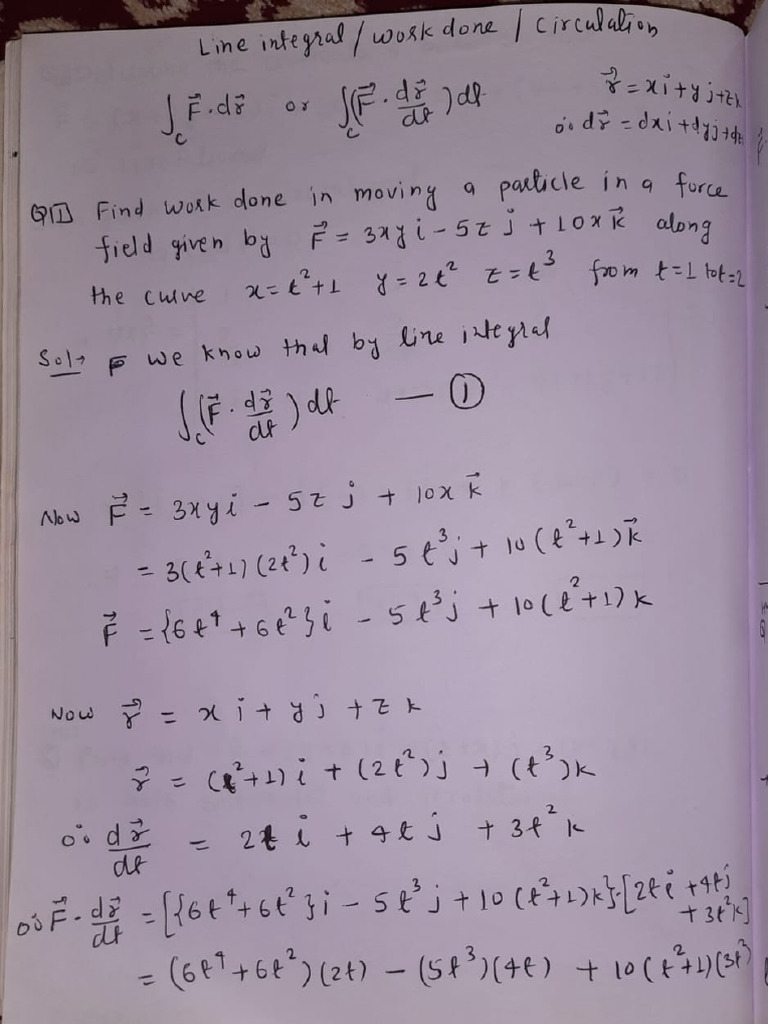 Line integral / work done / Circulation
∫_C F⃗·dr⃗ or ∫_C (F⃗·dr⃗/dt) dt r⃗ = xi + yj + zk
∴ dr⃗ = dxi + dyj + dz
Q1] Find work done in moving a particle in a force
field given by F⃗ = 3xy i - 5z j + 10x k⃗ along
the curve x = t²+1 y = 2t² z = t³ from t=1 to t=2
Sol→ we know that by line integral
∫_C (F⃗·dr⃗/dt) dt — ①
Now F⃗ = 3xy i - 5z j + 10x k⃗
= 3(t²+1)(2t²) i - 5t³ j + 10(t²+1) k⃗
F⃗ = {6t⁴ + 6t²} i - 5t³ j + 10(t²+1) k
Now r⃗ = x i + y j + z k
r⃗ = (t²+1) i + (2t²) j + (t³) k
∴ dr⃗/dt = 2t i + 4t j + 3t² k
∴ F⃗·dr⃗/dt = [{6t⁴+6t²} i - 5t³ j + 10(t²+1)k}·[2t i + 4t j
+ 3t² k]
= (6t⁴+6t²)(2t) - (5t³)(4t) + 10(t²+1)(3t²)